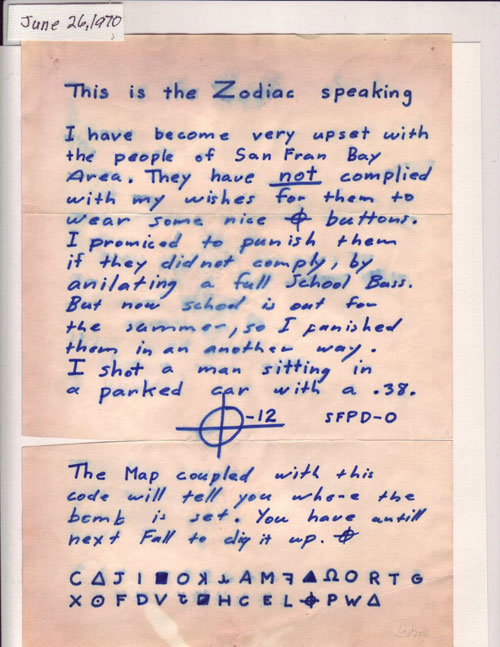 June 26, 1970,
This is the Zodiac speaking
I have become very upset with
the people of San Fran Bay
Area. They have not complied
with my wishes for them to
wear some nice ⌖ buttons.
I promiced to punish them
if they did not comply, by
anilating a full School Buss.
But now school is out for
the summer, so I punished
them in an another way.
I shot a man sitting in
a parked car with a .38.
⌖-12 SFPD-0
The Map coupled with this
code will tell you where the
bomb is set. You have untill
next Fall to dig it up. ⌖
C Δ J I ■ O ꓘ ⅄ A M ꟻ ▲ Ω O R T G
X ⊙ F D V Ƨ ■ H C E L ⌖ P W Δ